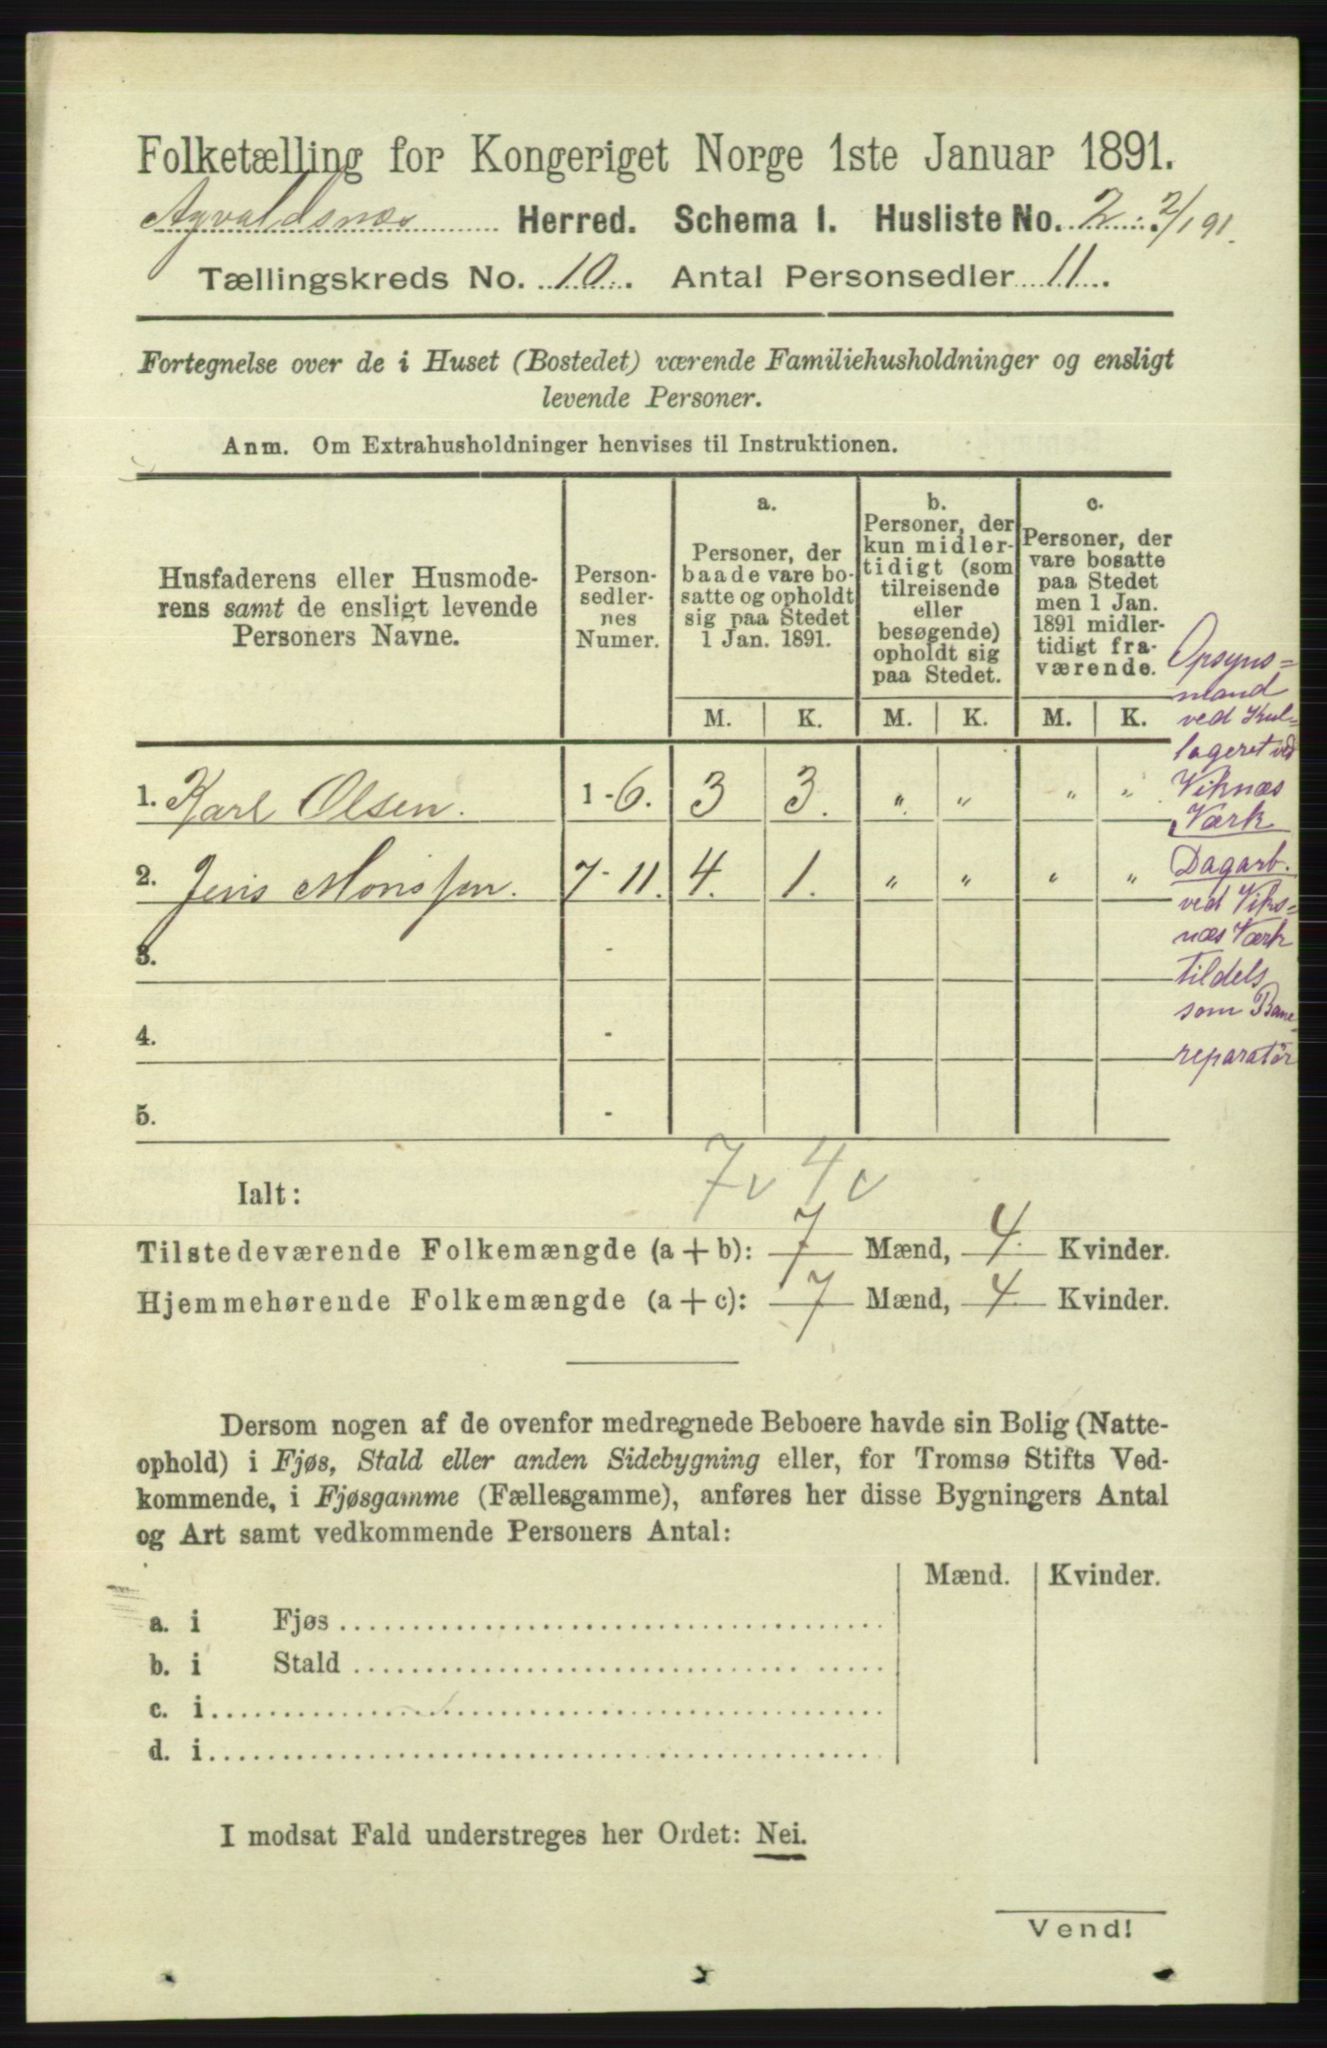 Folketælling for Kongeriget Norge 1ste Januar 1891.
Agvaldsnæs Herred. Schema 1. Husliste No. 2 2/1 91.
Tællingskreds No. 10. Antal Personsedler 11.
Fortegnelse over de i Huset (Bostedet) værende Familiehusholdninger og ensligt
levende Personer.
Anm. Om Extrahusholdninger henvises til Instruktionen.
Husfaderens eller Husmode-
rens samt de ensligt levende
Personers Navne.
Person-
sedler-
nes
Numer.
a.
Personer, der
baade vare bo-
satte og opholdt
sig paa Stedet
1 Jan. 1891.
b.
Personer, der
kun midler-
tidigt (som
tilreisende
eller
besøgende)
opholdt sig
paa Stedet.
c.
Personer, der
vare bosatte
paa Stedet
men 1 Jan.
1891 midler-
tidigt fra-
værende.
M. K. M. K. M. K.
1. Karl Olsen. 1-6. 3 3. " " " "
2. Jens Monssen. 7-11. 4. 1. " " " "
3. -
4. -
5. -
Opsyns=
mand
ved Kul=
lageret ved
Viknæs
Værk
Dagarb.
ved Viks=
næs Værk
tildels
som Bane=
reparatör
7v 4v
Ialt:
Tilstedeværende Folkemængde (a + b): 7 Mænd, 4. Kvinder.
Hjemmehørende Folkemængde (a + c): 7 Mænd, 4. Kvinder.
Dersom nogen af de ovenfor medregnede Beboere havde sin Bolig (Natte-
ophold) i Fjøs, Stald eller anden Sidebygning eller, for Tromsø Stifts Ved-
kommende, i Fjøsgamme (Fællesgamme), anføres her disse Bygningers Antal
og Art samt vedkommende Personers Antal:
Mænd. Kvinder.
a. i Fjøs
b. i Stald
c. i
d. i
I modsat Fald understreges her Ordet: Nei.
Vend!